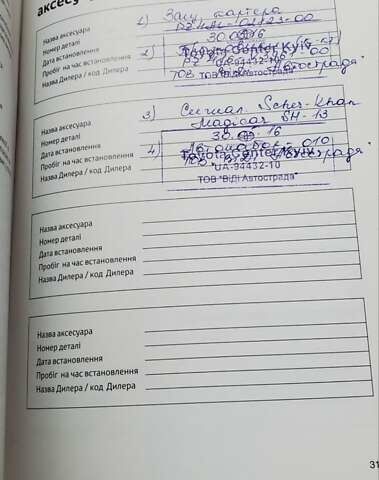 аксесу
1) Защ. картера
Назва аксесуара
Номер деталі
30.
16
Дата встановлення
2)
Toyota Center Kyiv
Пробіг на час встановлення
UA-94432-10
Назва Дилера / код Дилера
ТОВ "ВіДі Автострада"
3) Сигнал. Scher-Khan
Назва аксесуара
Magicar SH-13
Номер деталі
30.
16
Дата встановлення
4)
010
Пробіг на час встановлення
Toyota Center Kyiv
UA-94432-10
Назва Дилера / код Дилера
ТОВ "ВіДі Автострада"
Назва аксесуара
Номер деталі
Дата встановлення
Пробіг на час встановлення
Назва Дилера / код Дилера
Назва аксесуара
Номер деталі
Дата встановлення
Пробіг на час встановлення
Назва Дилера / код Дилера
31